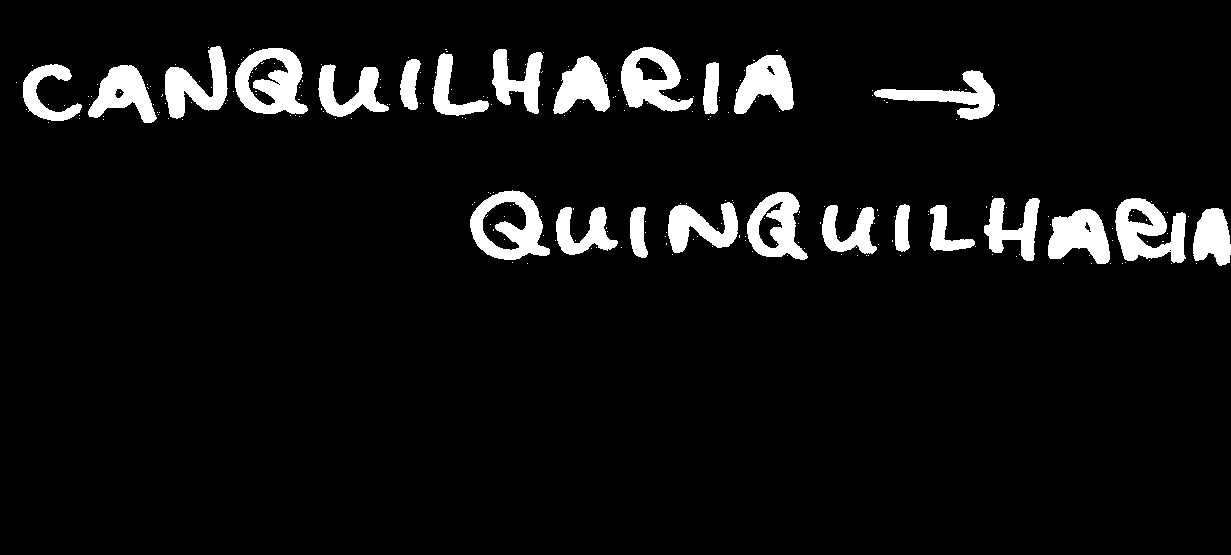 CANQUILHARIA →
QUINQUILHARIA